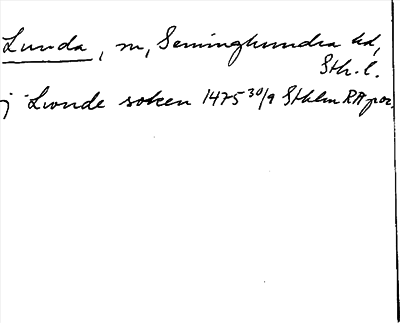 Lunda, sn, Seminghundra hd,
Sth. l.
j Lwnde soken 1475 30/9 Sthlm RA por.